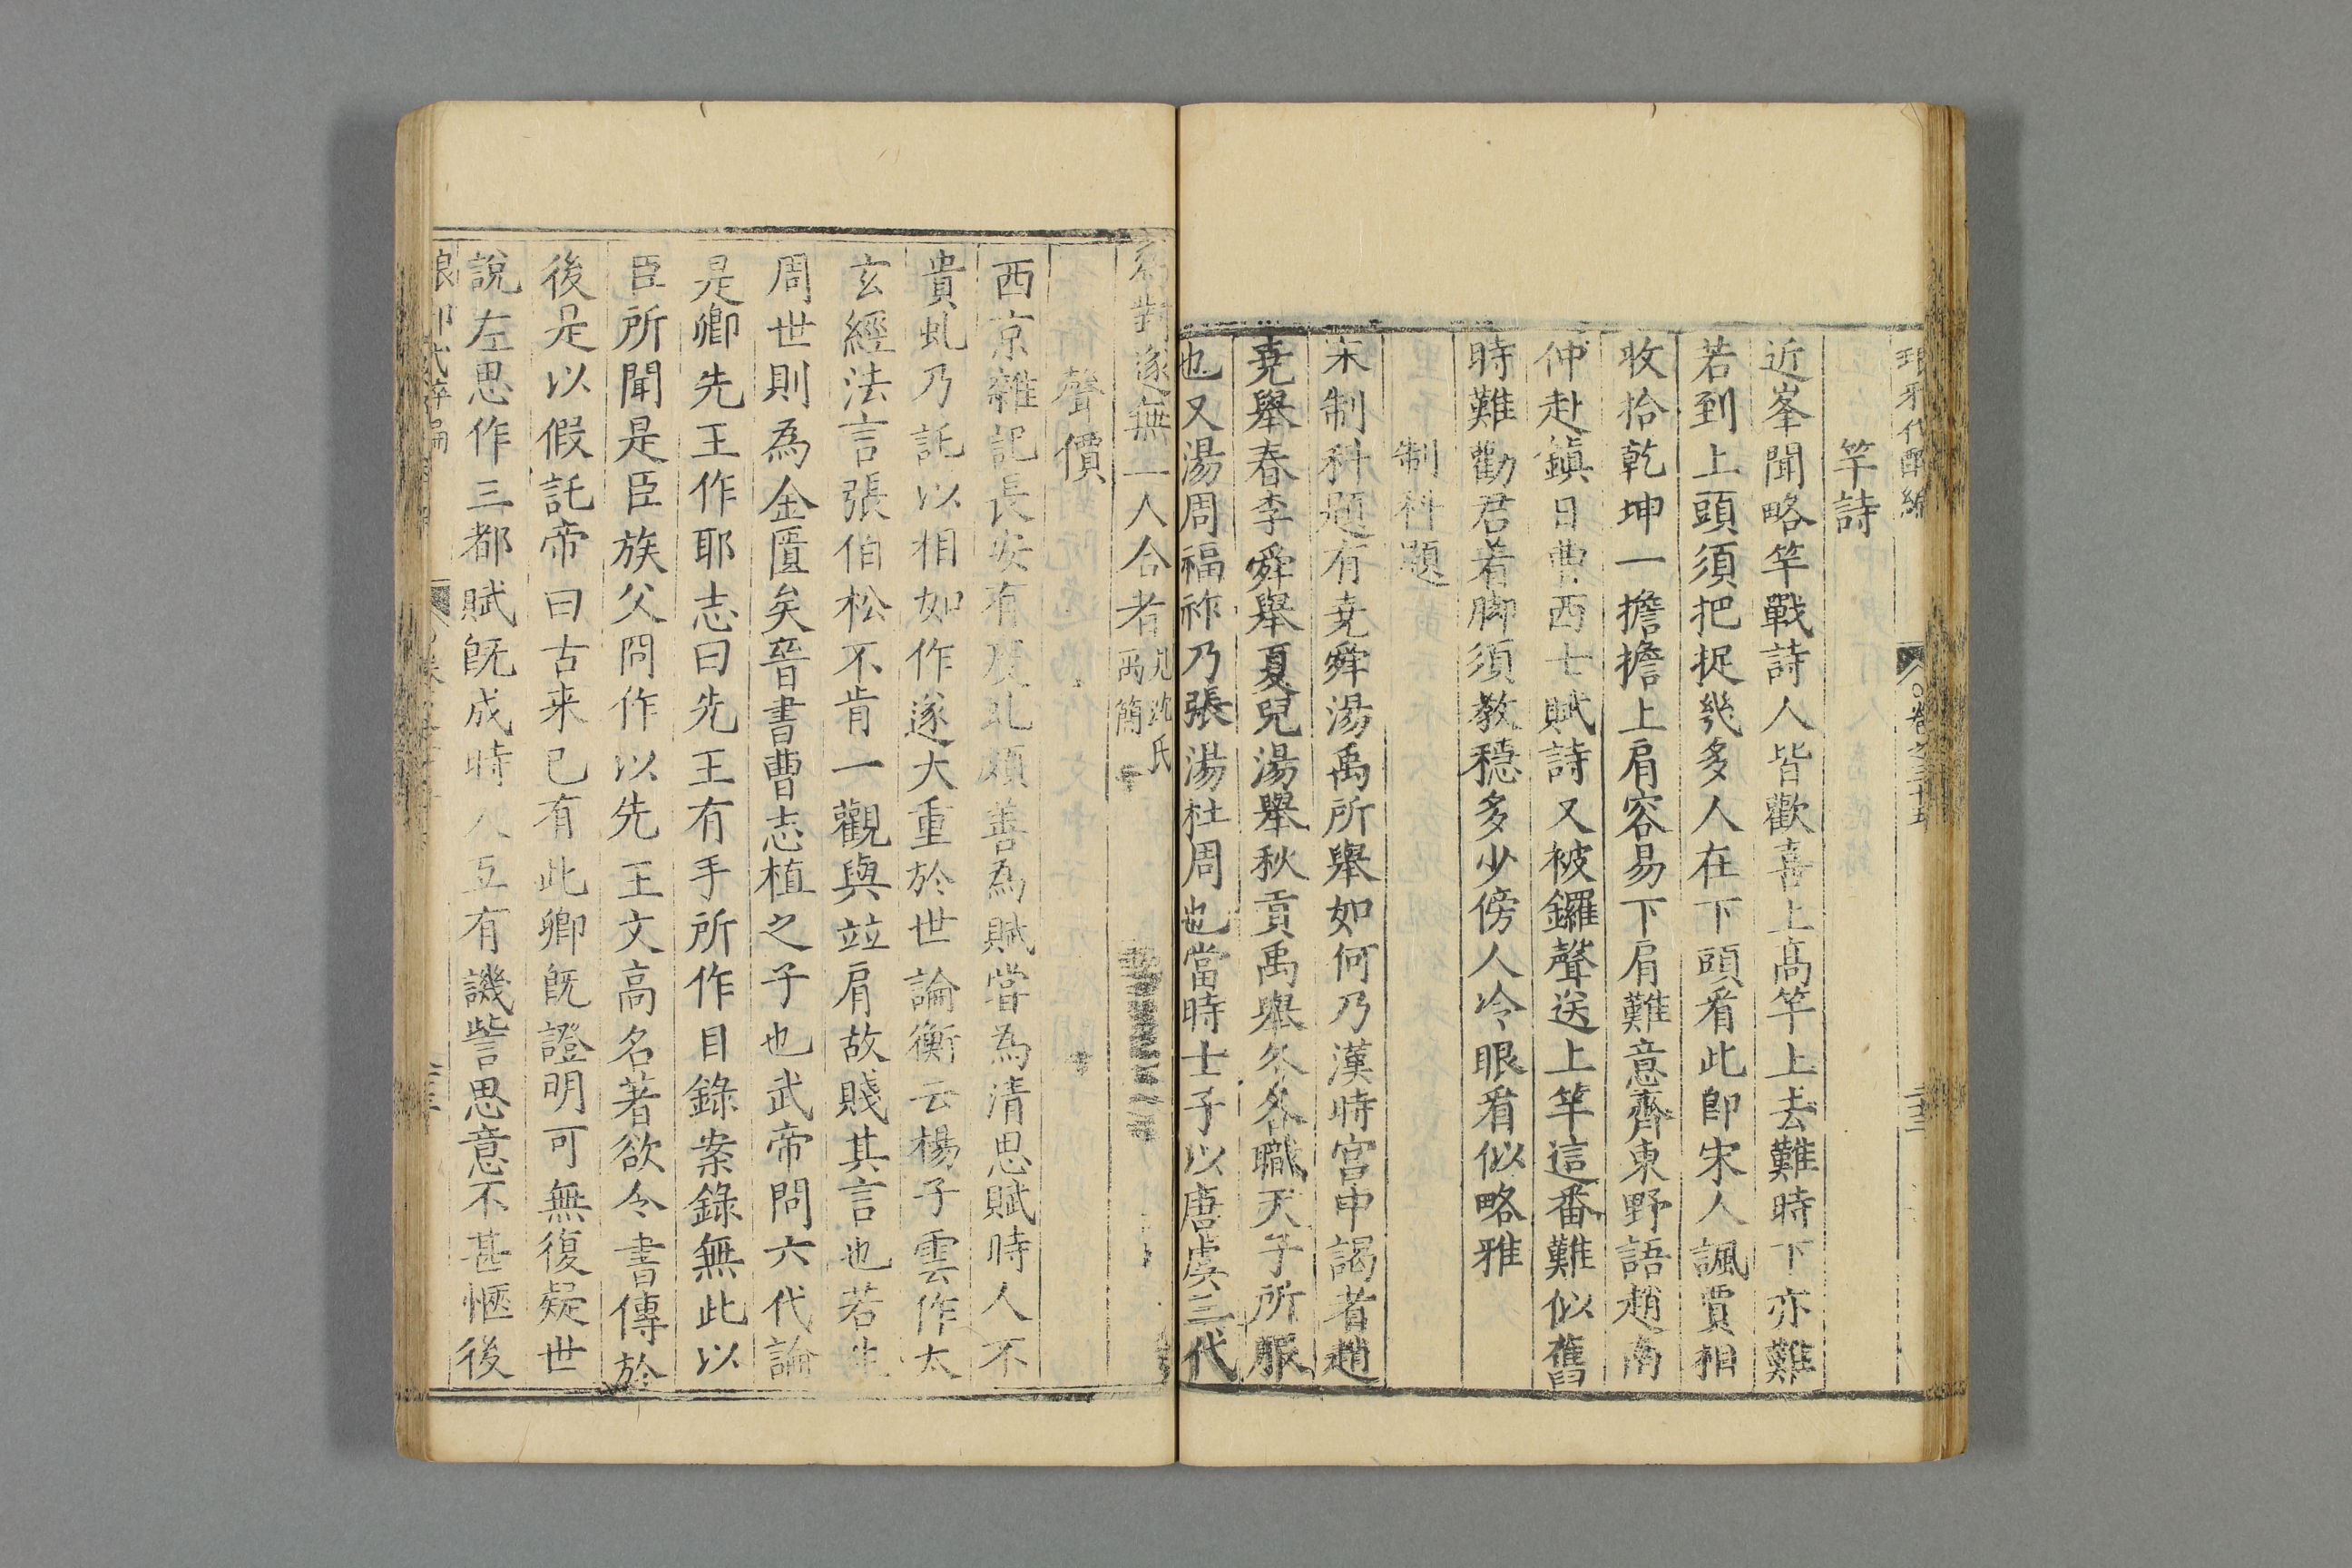 琅邪代醉編 卷之三十五
竿詩
近峯聞略竿戰詩人皆歡喜上高竿上去難時下亦難
若到上頭須把捉幾多人在下頭看此卽宋人諷賈相
收拾乾坤一擔擔上肩容易下肩難意齊東野語趙南
仲赴鎮日曹西士賦詩又被鑼聲送上竿這番難似舊
時難勸君着脚須教穩多少傍人冷眼看似略雅
制科題
宋制科題有堯舜湯禹所舉如何乃漢時宮中謁者趙
堯舉春李舜舉夏兒湯舉秋貢禹舉冬各職天子所服
也又湯周福祚乃張湯杜周也當時士子以唐虞三代
爲對遂無一人合者 見沈氏禹簡
聲價
西京雜記長安有慶虬頗善為賦嘗為清思賦時人不
貴虬乃託以相如作遂大重於世論衡云楊子雲作太
玄經法言張伯松不肯一觀與竝肩故賤其言也若生
周世則為金匱矣晉書曹志植之子也武帝問六代論
是卿先王作耶志曰先王有手所作目錄案錄無此以
臣所聞是臣族父冏作以先王文高名著欲令書傳於
後是以假託帝曰古来已有此卿旣證明可無復疑世
說左思作三都賦旣成時人互有譏訾思意不甚愜後